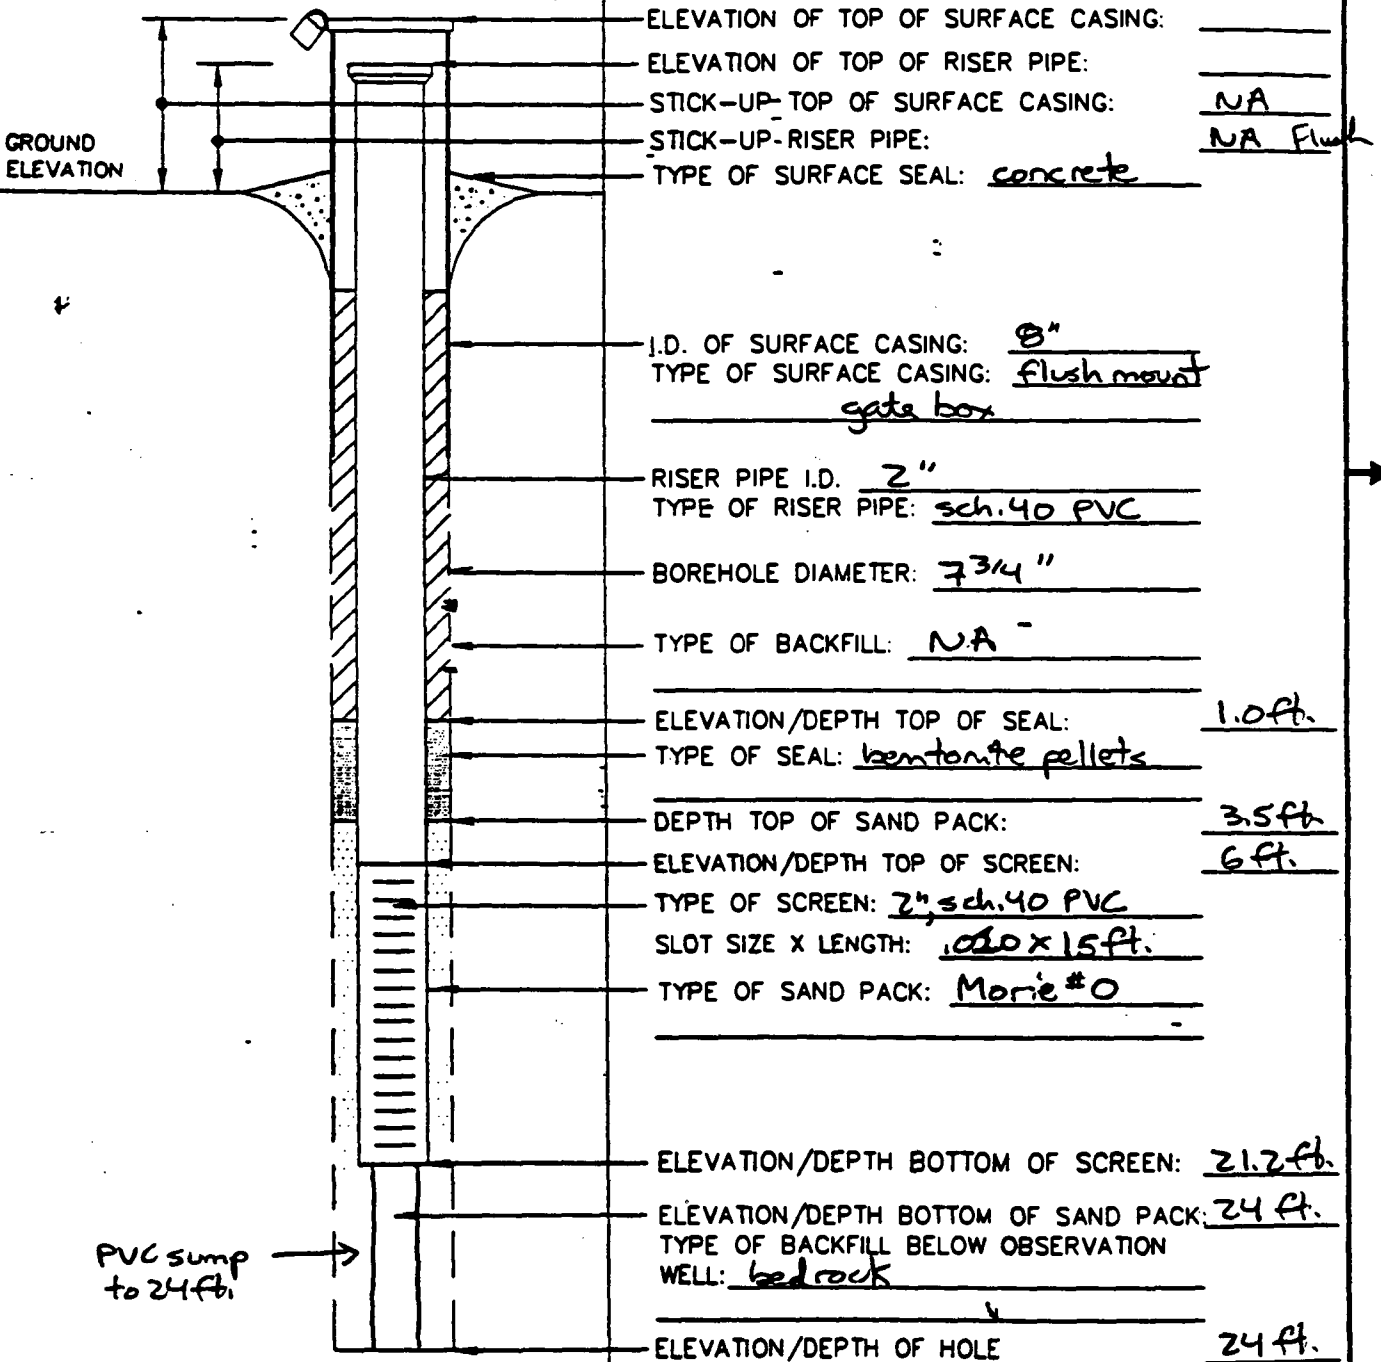 ELEVATION OF TOP OF SURFACE CASING:
ELEVATION OF TOP OF RISER PIPE:
STICK-UP-TOP OF SURFACE CASING: NA
STICK-UP-RISER PIPE: NA Flush
GROUND
ELEVATION
TYPE OF SURFACE SEAL: concrete
I.D. OF SURFACE CASING: 8"
TYPE OF SURFACE CASING: flush mount
gate box
RISER PIPE I.D. 2"
TYPE OF RISER PIPE: sch.40 PVC
BOREHOLE DIAMETER: 7 3/4"
TYPE OF BACKFILL: NA
ELEVATION/DEPTH TOP OF SEAL: 1.0 ft.
TYPE OF SEAL: bentonite pellets
DEPTH TOP OF SAND PACK: 3.5 ft
ELEVATION/DEPTH TOP OF SCREEN: 6 ft.
TYPE OF SCREEN: 2", sch.40 PVC
SLOT SIZE X LENGTH: x 15 ft.
TYPE OF SAND PACK: Morie #0
ELEVATION/DEPTH BOTTOM OF SCREEN: 21.2 ft.
ELEVATION/DEPTH BOTTOM OF SAND PACK: 24 ft.
TYPE OF BACKFILL BELOW OBSERVATION
WELL: bedrock
PVC sump
to 24 ft.
ELEVATION/DEPTH OF HOLE 24 ft.